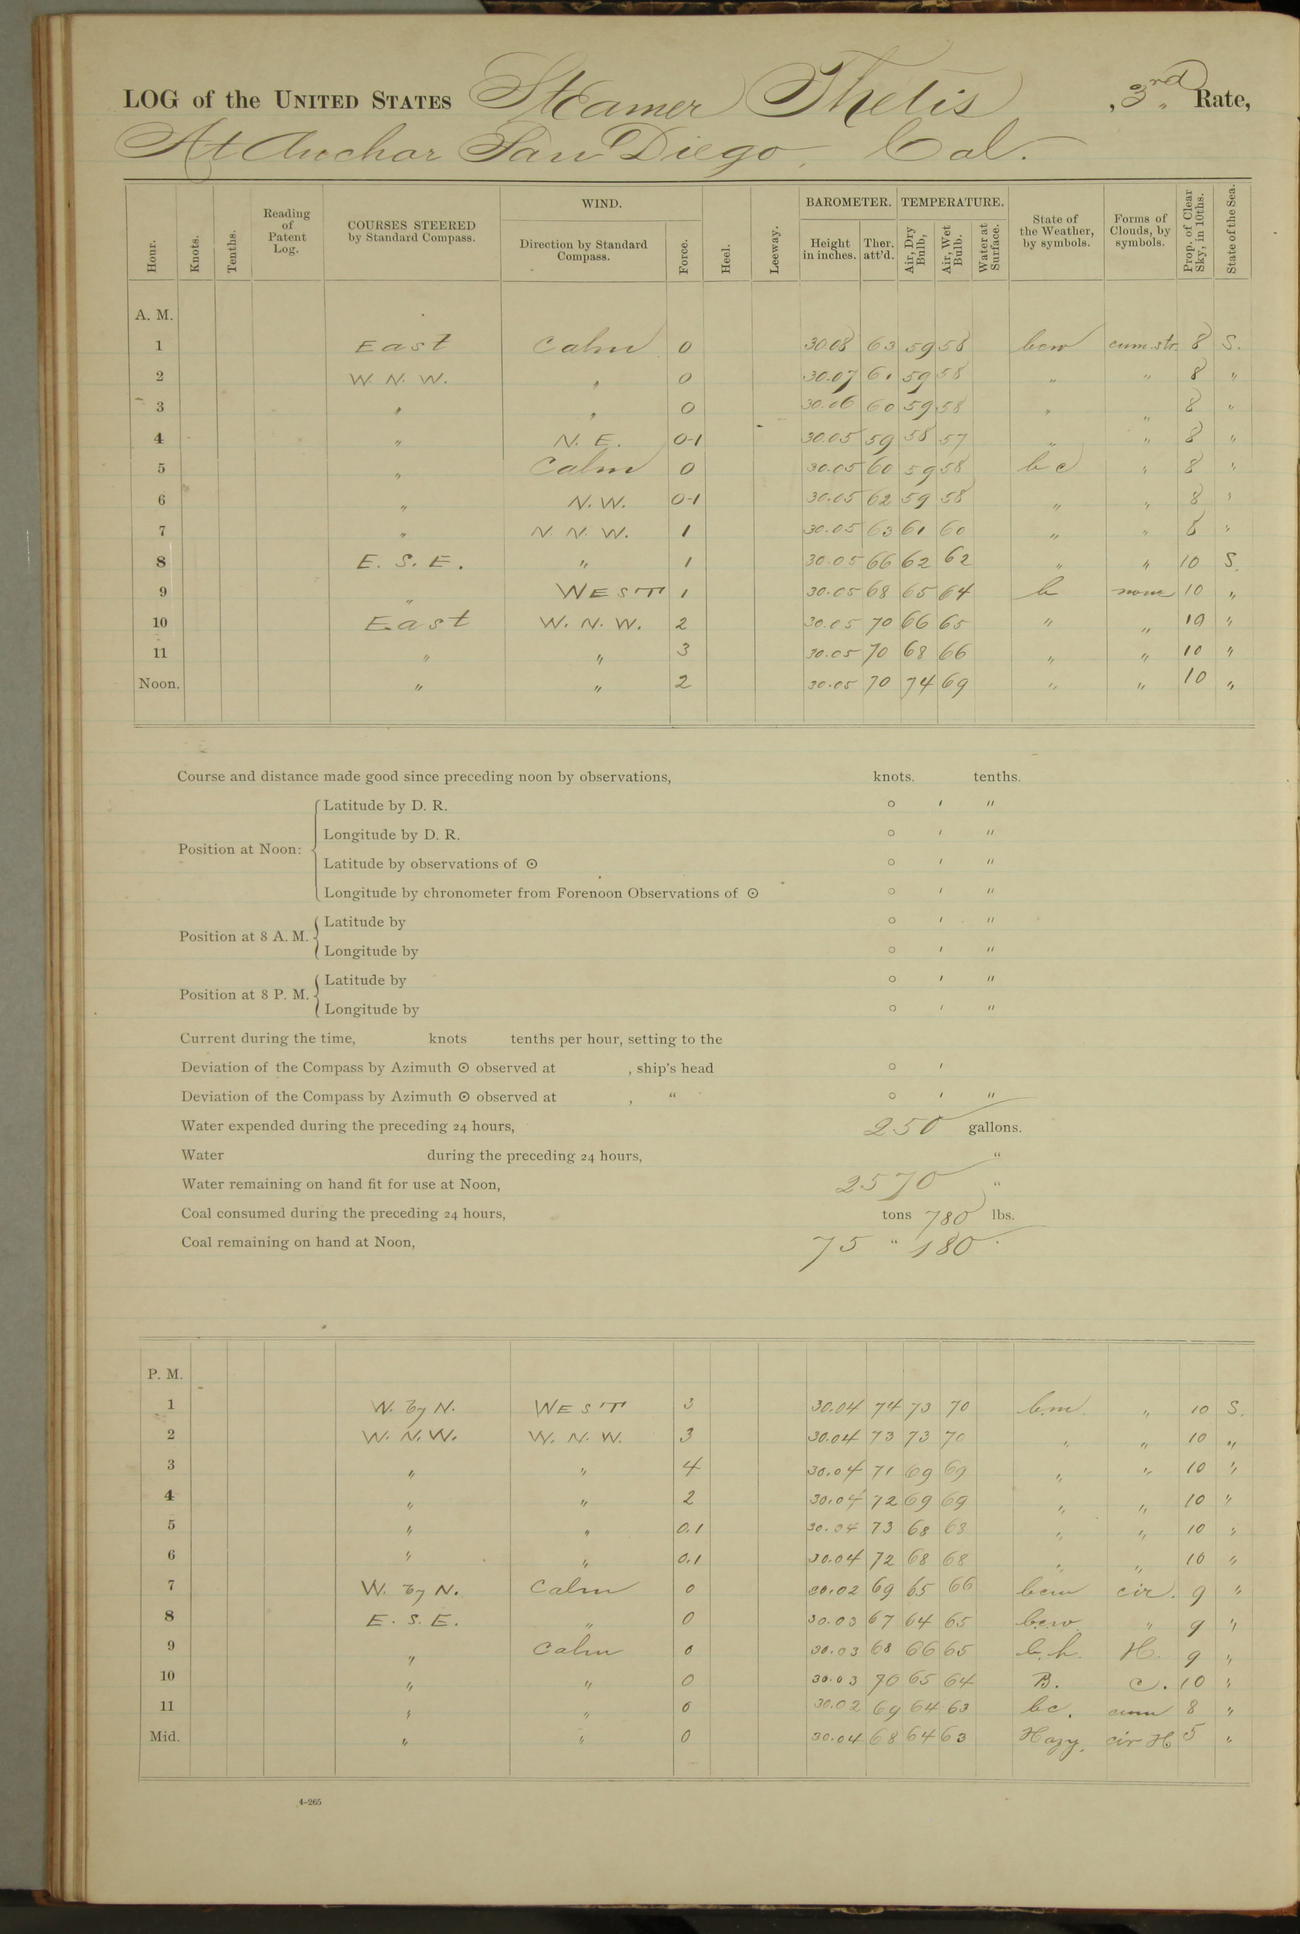 LOG of the UNITED STATES Steamer Thetis , 3rd Rate,
At Anchor San Diego, Cal.
Hour. Knots. Tenths. Reading of Patent Log. COURSES STEERED by Standard Compass. WIND. Direction by Standard Compass. Force. Heel. Leeway. BAROMETER. Height in inches. Ther. att'd. TEMPERATURE. Air, Dry Bulb, Air, Wet Bulb. Water at Surface. State of the Weather, by symbols. Forms of Clouds, by symbols. Prop. of Clear Sky, in 10ths. State of the Sea.
A. M.
1 East Calm 0 30.08 63 59 58 bcw cum.str. 8 S.
2 W. N. W. " 0 30.07 61 59 58 " " 8 "
3 " " 0 30.06 60 59 58 " " 8 "
4 " N. E. 0-1 30.05 59 58 57 " " 8 "
5 " Calm 0 30.05 60 59 58 b c " 8 "
6 " N.W. 0-1 30.05 62 59 58 " " 8 "
7 " N. N. W. 1 30.05 63 61 60 " " 8 "
8 E. S. E. " 1 30.05 66 62 62 " " 10 S.
9 " WEST 1 30.05 68 65 64 b none 10 "
10 East W. N. W. 2 30.05 70 66 65 " " 10 "
11 " " 3 30.05 70 68 66 " " 10 "
Noon. " " 2 30.05 70 74 69 " " 10 "
Course and distance made good since preceding noon by observations, knots. tenths.
Position at Noon: Latitude by D. R. ° ′ ″
Longitude by D. R. ° ′ ″
Latitude by observations of ☉ ° ′ ″
Longitude by chronometer from Forenoon Observations of ☉ ° ′ ″
Position at 8 A. M. Latitude by ° ′ ″
Longitude by ° ′ ″
Position at 8 P. M. Latitude by ° ′ ″
Longitude by ° ′ ″
Current during the time, knots tenths per hour, setting to the
Deviation of the Compass by Azimuth ☉ observed at , ship's head ° ′
Deviation of the Compass by Azimuth ☉ observed at , " ° ′ ″
Water expended during the preceding 24 hours, 250 gallons.
Water during the preceding 24 hours, "
Water remaining on hand fit for use at Noon, 2570 "
Coal consumed during the preceding 24 hours, tons 780 lbs.
Coal remaining on hand at Noon, 75 " 180
P. M.
1 W. by N. WEST 3 30.04 74 73 70 b.m. " 10 S.
2 W. N. W. W. N. W. 3 30.04 73 73 70 " " 10 "
3 " " 4 30.04 71 69 69 " " 10 "
4 " " 2 30.04 72 69 69 " " 10 "
5 " " 0.1 30.04 73 68 68 " " 10 "
6 " " 0.1 30.04 72 68 68 " " 10 "
7 W. by N. Calm 0 30.02 69 65 66 bcm cir. 9 "
8 E. S. E. " 0 30.03 67 64 65 bcw. " 9 "
9 " Calm 0 30.03 68 66 65 b.h. H. 9 "
10 " " 0 30.03 70 65 64 B. C. 10 "
11 " " 0 30.02 69 64 63 bc. cum 8 "
Mid. " " 0 30.04 68 64 63 Hazy. cir H 5 "
4-265